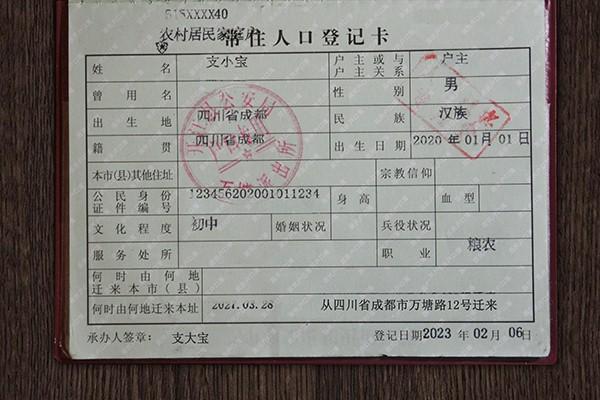 515XXXX40
农村居民家庭户
常住人口登记卡
姓名 支小宝 户主或与户主关系 户主
曾用名 性别 男
出生地 四川省成都 民族 汉族
籍贯 四川省成都 出生日期 2020 年 01 月 01 日
本市(县)其他住址 宗教信仰
公民身份证件编号 123456202001011234 身高 血型
文化程度 初中 婚姻状况 兵役状况
服务处所 职业 粮农
何时由何地迁来本市(县)
何时由何地迁来本址 2021.03.28 从四川省成都市万塘路12号迁来
承办人签章: 支大宝 登记日期 2023 年 02 月 06 日